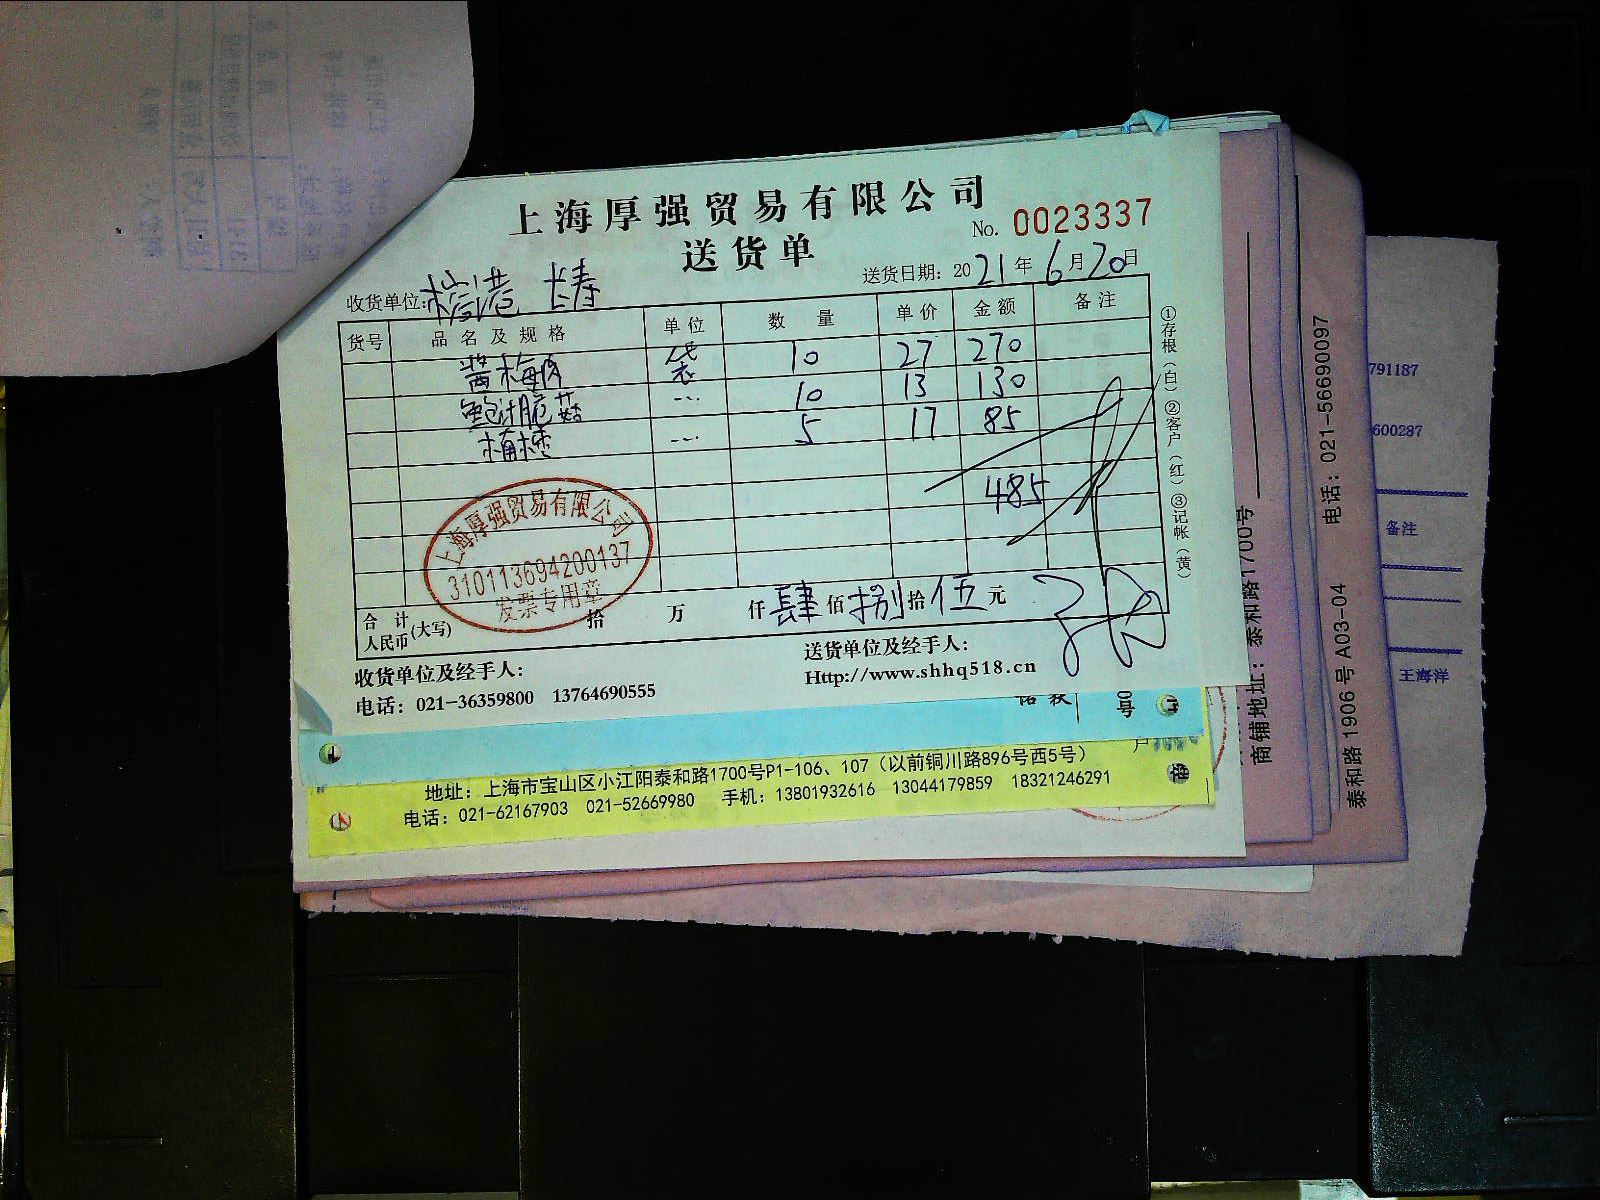 上海厚强贸易有限公司
No. 0023337
送货单
收货单位: 长寿
送货日期: 2021年6月20日
货号 品名及规格 单位 数量 单价 金额 备注
酱梅肉 袋 10 27 270
鲍汁脆菇 … 10 13 130
… 5 17 85
485
上海厚强贸易有限公司
310113694200137
发票专用章
合计人民币(大写) 拾 万 仟 肆 佰 捌 拾 伍 元
收货单位及经手人:
送货单位及经手人:
电话: 021-36359800 13764690555
Http://www.shhq518.cn
①存根(白)②客户(红)③记帐(黄)
地址: 上海市宝山区小江阳泰和路1700号P1-106、107 (以前铜川路896号西5号)
电话: 021-62167903 021-52669980 手机: 13801932616 13044179859 18321246291
号
户
商铺地址: 泰和路1700号
泰和路 1906 号 A03-04 电话: 021-56690097
791187
600287
备注
王海洋